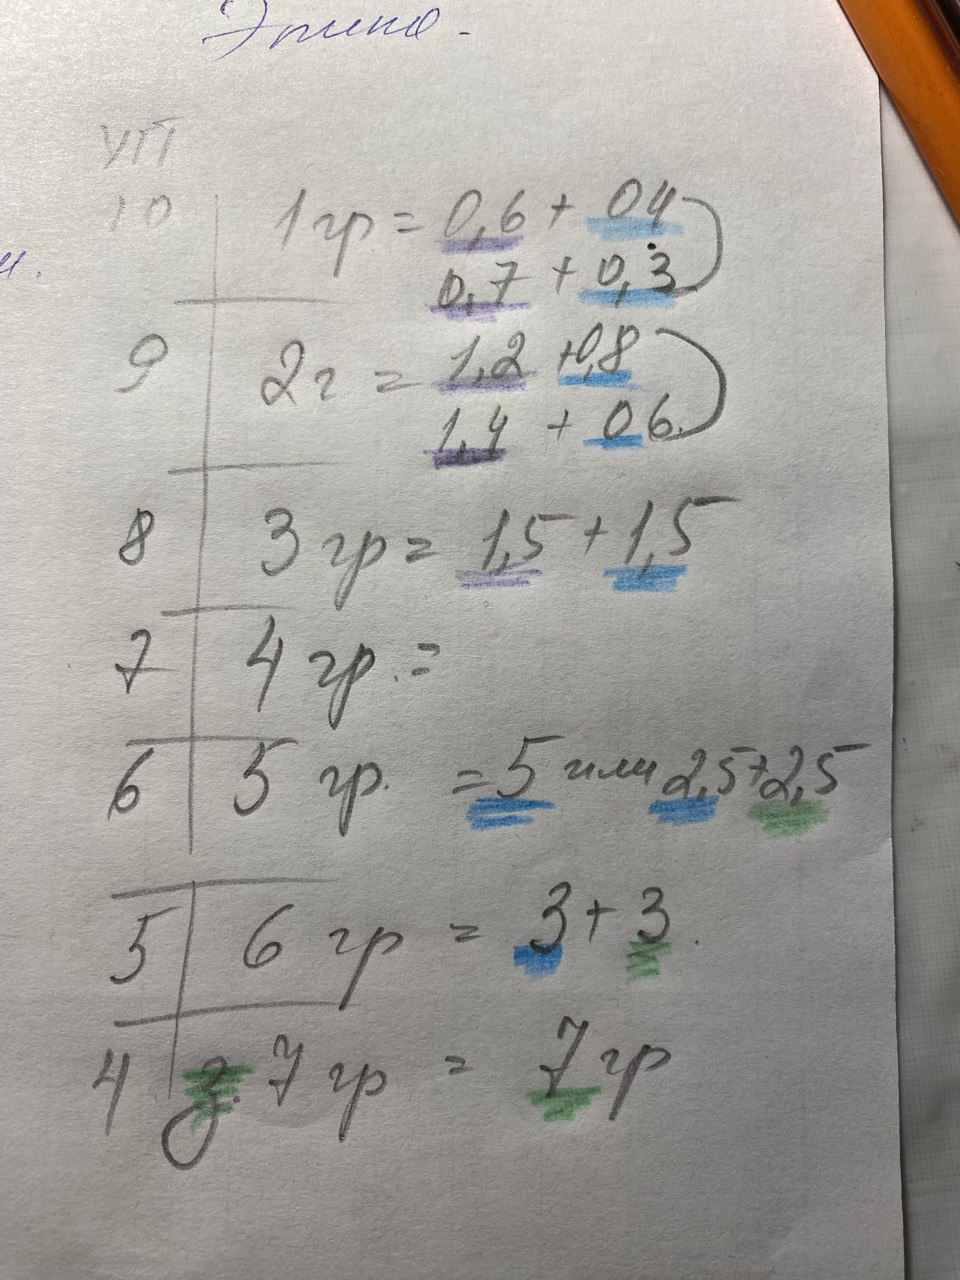 УП
10 1 гр = 0,6 + 04
0,7 + 0,3
9 2 г = 1,2 + 0,8
1,4 + 06.
8 3 гр = 1,5 + 1,5
7 4 гр. =
6 5 гр. = 5 или 2,5 + 2,5
5 6 гр = 3 + 3.
4 з. 7 гр = 7 гр